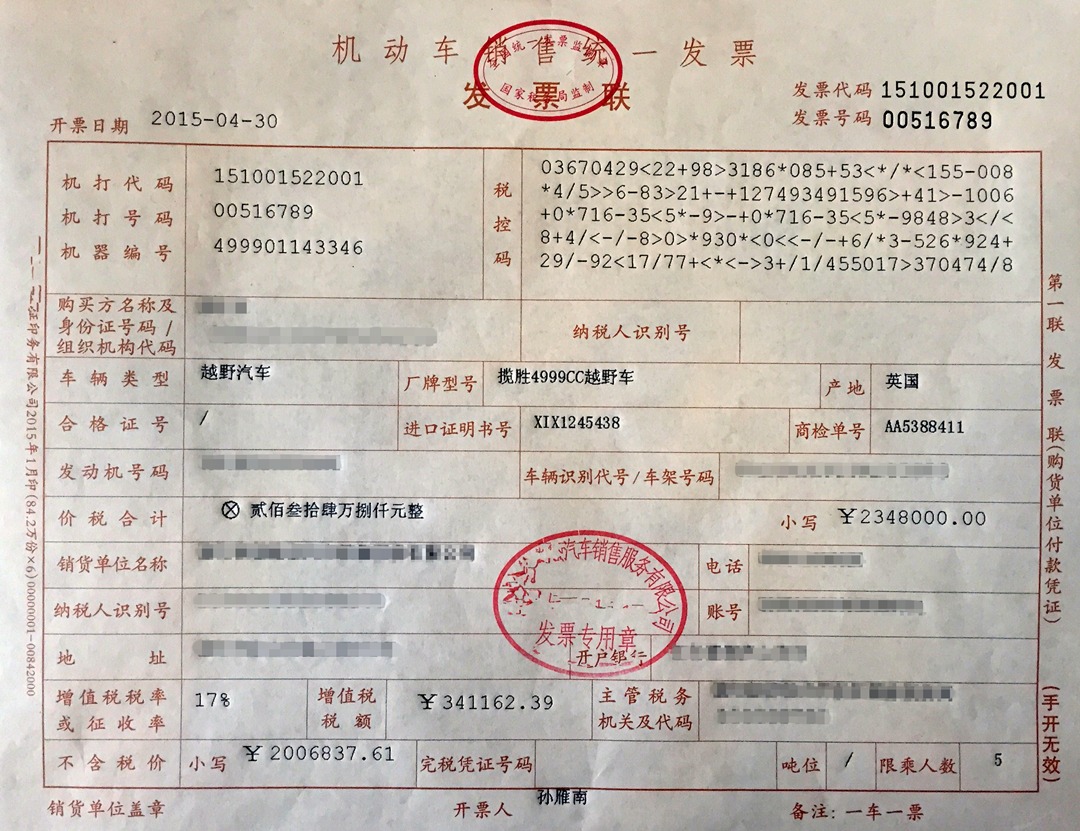 机动车销售统一发票
发票联
发票代码 151001522001
发票号码 00516789
开票日期 2015-04-30
机打代码 151001522001
机打号码 00516789
机器编号 499901143346
税控码
03670429<22+98>3186*085+53<*/*<155-008
*4/5>>6-83>21+-+127493491596>+41>-1006
+0*716-35<5*-9>-+0*716-35<5*-9848>3</<
8+4/<-/-8>0>*930*<0<<-/-+6/*3-526*924+
29/-92<17/77+<*<->3+/1/455017>370474/8
购买方名称及
身份证号码/
组织机构代码
纳税人识别号
车辆类型 越野汽车 厂牌型号 揽胜4999CC越野车 产地 英国
合格证号 / 进口证明书号 XIX1245438 商检单号 AA5388411
发动机号码 车辆识别代号/车架号码
价税合计 ⊗ 贰佰叁拾肆万捌仟元整 小写 ￥2348000.00
销货单位名称 电话
纳税人识别号 账号
地址 开户银行
增值税税率
或征收率
17%
增值税
税额
￥341162.39
主管税务
机关及代码
不含税价 小写 ￥2006837.61 完税凭证号码 吨位 / 限乘人数 5
销货单位盖章 开票人 孙雁南 备注:一车一票
第一联 发票联(购货单位付款凭证)
(手开无效)
证印务有限公司2015年1月印(84.2万份×6)00000001-00842000
全国统一发票监制章
国家税务局监制
汽车销售服务有限公司
发票专用章